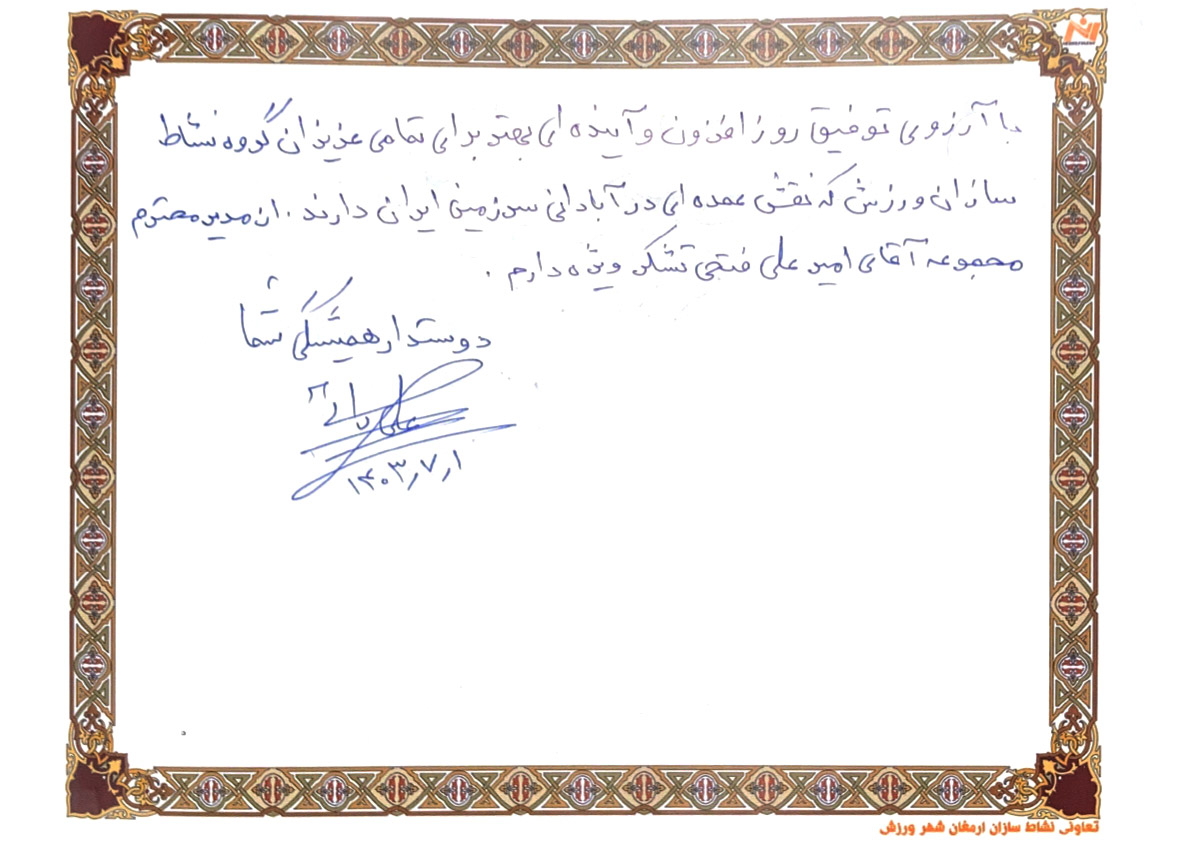 با آرزوی توفیق روز افزون و آینده ای بهتر برای تمامی عزیزان گروه نشاط
سازان ورزش که نقش عمده ای در آبادانی سرزمین ایران دارند . از مدیر محترم
مجموعه آقای امیر علی فتحی تشکر ویژه دارم .
دوستدار همیشگی شما
علی
۱۴۰۳٫۷٫۱
تعاونی نشاط سازان ارمغان شهر ورزش